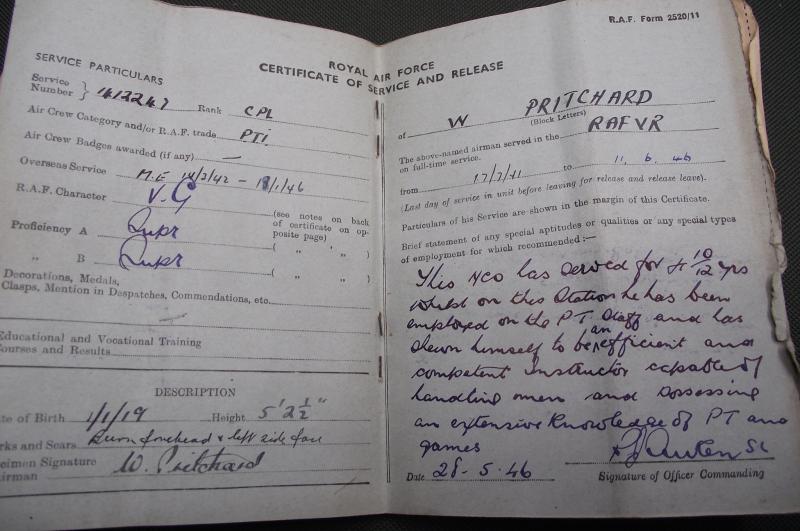 SERVICE PARTICULARS
Service Number } 1413247 Rank CPL
Air Crew Category and/or R.A.F. trade PTI
Air Crew Badges awarded (if any) —
Overseas Service M.E 14/3/42 - 18/1/46
R.A.F. Character V.G (see notes on back of certificate on opposite page)
Proficiency A Supr ( „ „ „ )
„ B Supr ( „ „ „ )
Decorations, Medals,
Clasps, Mention in Despatches, Commendations, etc.
—
Educational and Vocational Training
Courses and Results
DESCRIPTION
of Birth 1/1/19 Height 5' 2½"
and Scars Burn forehead & left side face
Signature W. Pritchard
R.A.F. Form 2520/11
ROYAL AIR FORCE
CERTIFICATE OF SERVICE AND RELEASE
of W PRITCHARD
(Block Letters)
The above-named airman served in the RAFVR
on full-time service.
from 17/7/41 to 11. 6. 46
(Last day of service in unit before leaving for release and release leave).
Particulars of his Service are shown in the margin of this Certificate.
Brief statement of any special aptitudes or qualities or any special types
of employment for which recommended:—
This NCO has served for 4 10/12 yrs
whilst on this Station he has been
employed on the PT Staff and has
shewn himself to be an efficient and
competent Instructor capable of
handling men and possessing
an extensive knowledge of PT and
games
Date 28-5-46
Signature of Officer Commanding